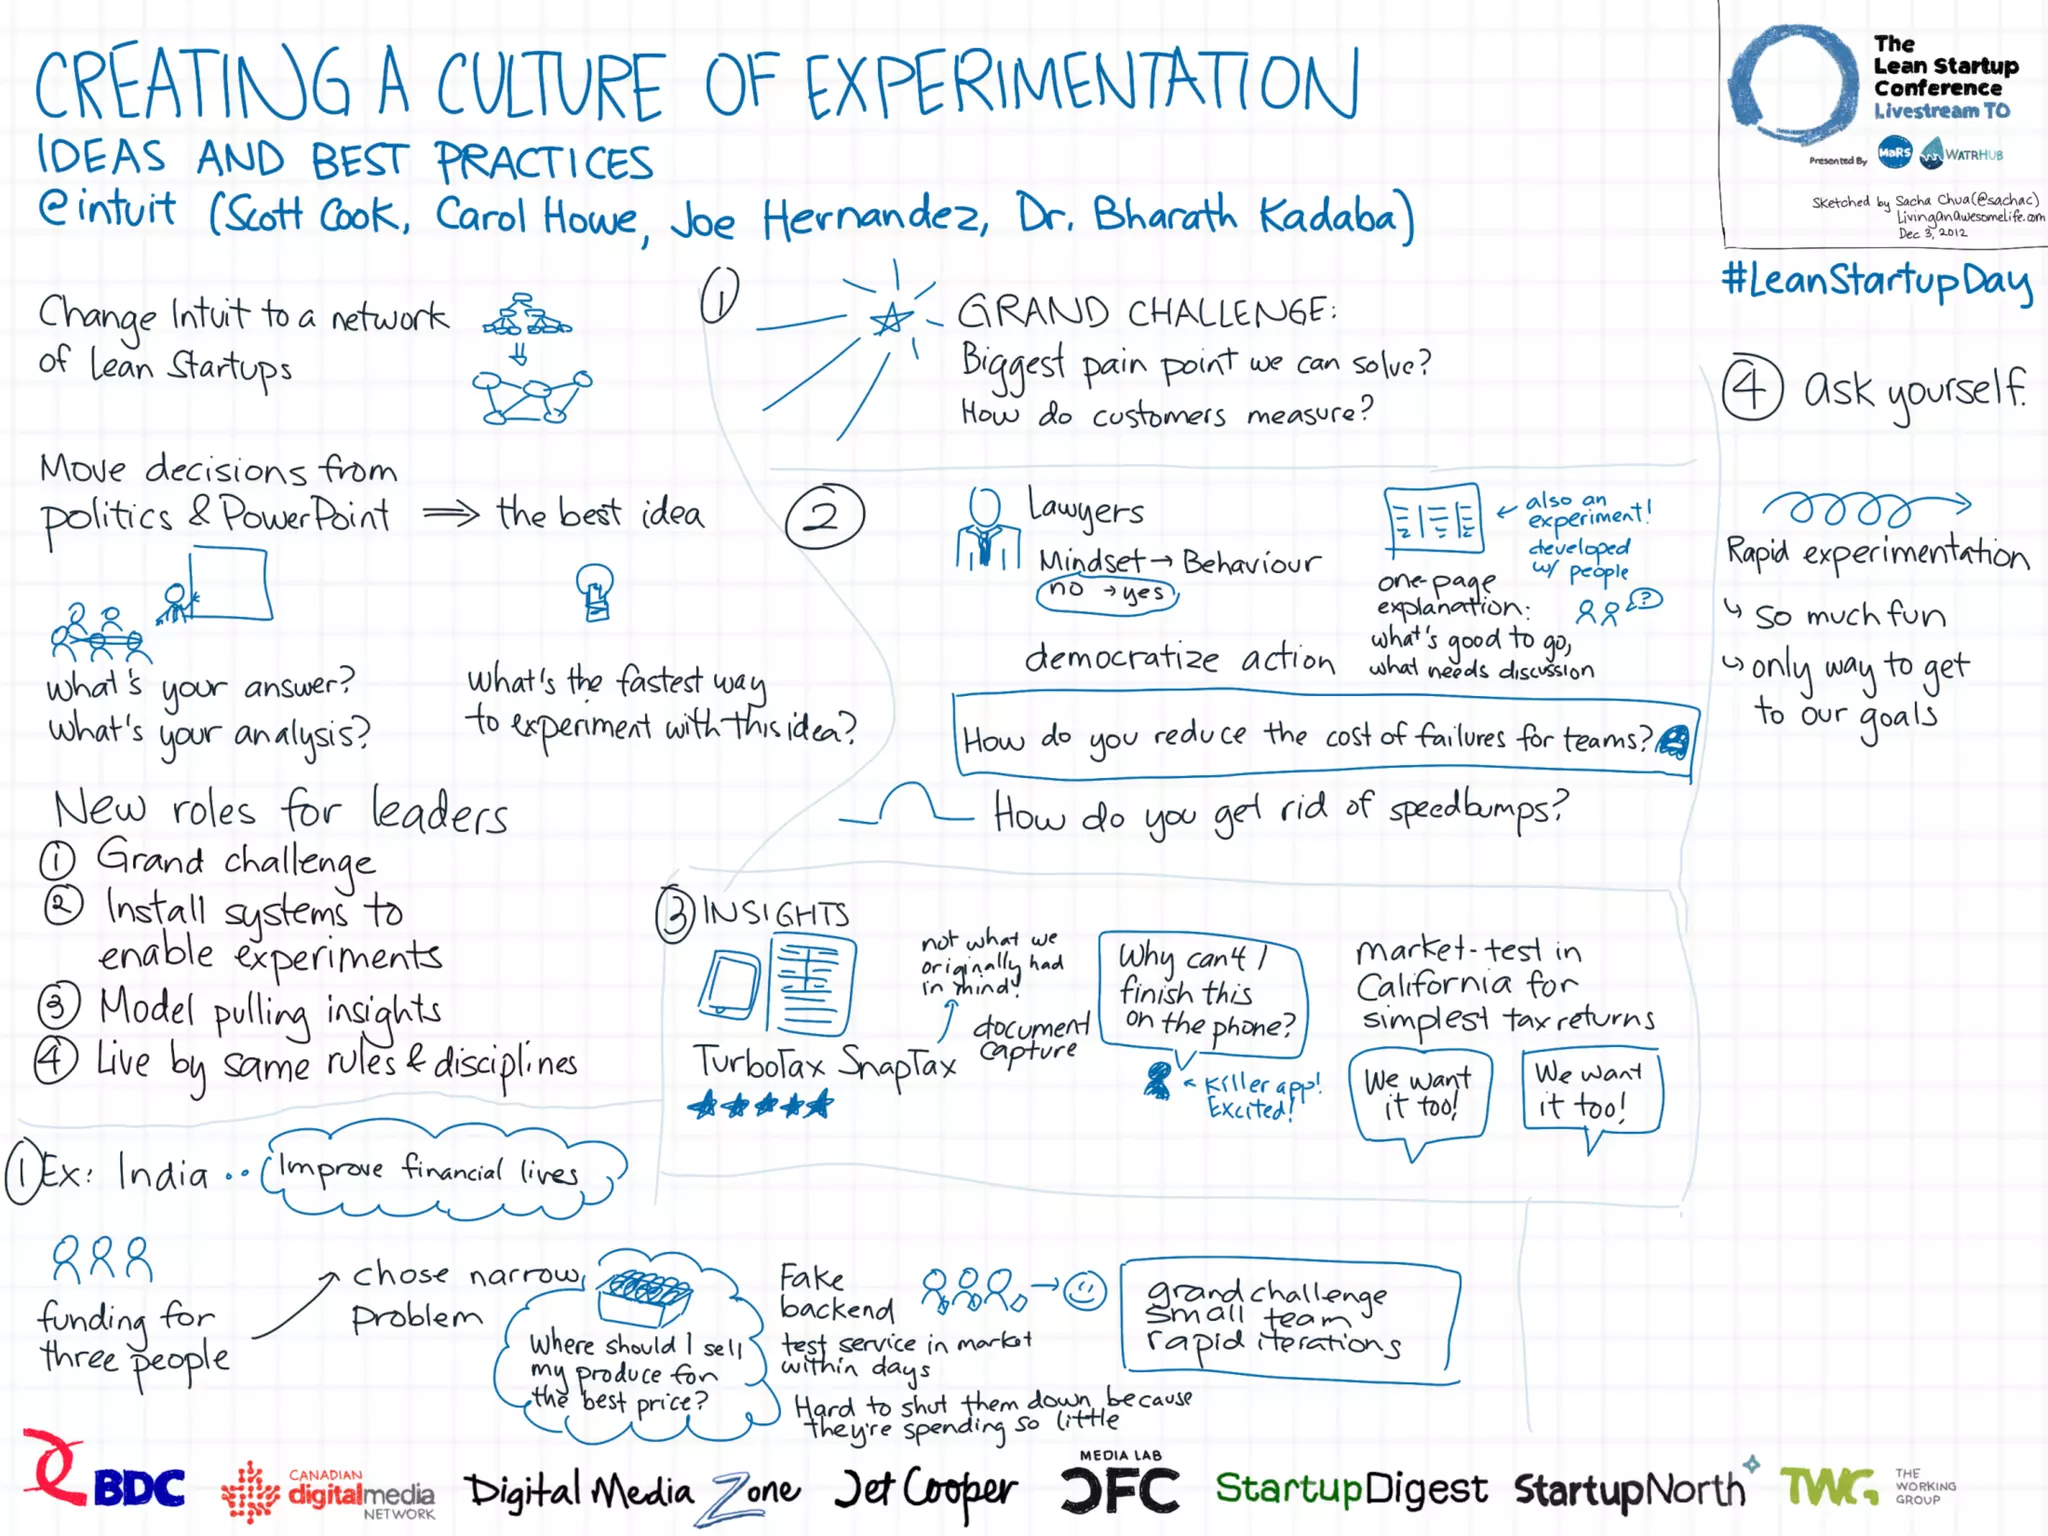 CREATING A CULTURE OF EXPERIMENTATION
IDEAS AND BEST PRACTICES
@intuit (Scott Cook, Carol Howe, Joe Hernandez, Dr. Bharath Kadaba)
The
Lean Startup
Conference
Livestream TO
Presented By MaRS WATRHUB
Sketched by Sacha Chua (@sachac)
LivingAnAwesomeLife.com
Dec 3, 2012
#LeanStartupDay
Change Intuit to a network
of Lean Startups
Move decisions from
politics & PowerPoint ⇒ the best idea
what's your answer?
what's your analysis?
what's the fastest way
to experiment with this idea?
New roles for leaders
① Grand challenge
② Install systems to
enable experiments
③ Model pulling insights
④ Live by same rules & disciplines
① GRAND CHALLENGE:
Biggest pain point we can solve?
How do customers measure?
② Lawyers
Mindset → Behaviour
no → yes
democratize action
← also an
experiment!
developed
w/ people
one-page
explanation:
?
what's good to go,
what needs discussion
How do you reduce the cost of failures for teams?
How do you get rid of speedbumps?
③ INSIGHTS
TurboTax SnapTax
not what we
originally had
in mind!
document
capture
Why can't I
finish this
on the phone?
← Killer app!
Excited!
market-test in
California for
simplest tax returns
We want
it too!
We want
it too!
④ ask yourself.
Rapid experimentation
↳ so much fun
↳ only way to get
to our goals
① Ex: India .. Improve financial lives
funding for
three people
chose narrow
problem
Where should I sell
my produce for
the best price?
Fake
backend
test service in market
within days
Hard to shut them down, because
they're spending so little
grand challenge
small team
rapid iterations
BDC
CANADIAN
digitalmedia
NETWORK
Digital Media Zone
Jet Cooper
MEDIA LAB
CFC
StartupDigest
StartupNorth
TWG
THE
WORKING
GROUP